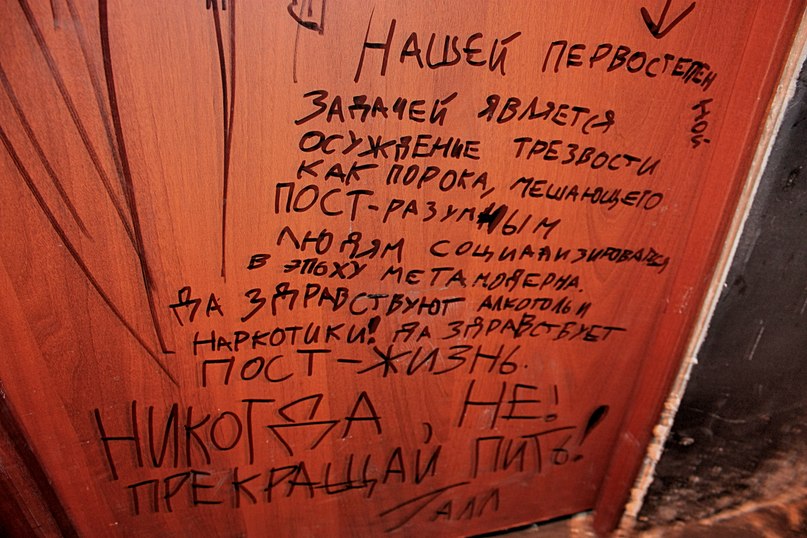 НАШЕЙ ПЕРВОСТЕПЕННОЙ
ЗАДАЧЕЙ ЯВЛЯЕТСЯ
ОСУЖДЕНИЕ ТРЕЗВОСТИ
КАК ПОРОКА, МЕШАЮЩЕГО
ПОСТ-РАЗУМНЫМ
ЛЮДЯМ СОЦИАЛИЗИРОВАТЬСЯ
В ЭПОХУ МЕТАМОДЕРНА.
ДА ЗДРАВСТВУЮТ АЛКОГОЛЬ И
НАРКОТИКИ! ДА ЗДРАВСТВУЕТ
ПОСТ-ЖИЗНЬ.
НИКОГДА, НЕ!
ПРЕКРАЩАЙ ПИТЬ!